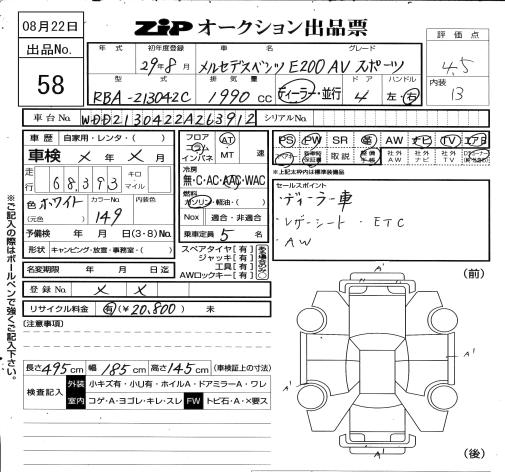 08月22日
ZiP オークション出品票
出品No.
58
年式 初年度登録 車名 グレード
29年8月 メルセデスベンツ E200 AV スポーツ
型式 排気量 ドア ハンドル
RBA-213042C 1990cc ディーラー・並行 4 左・右
評価点
4.5
内装
13
車台No. WDD2130422A263912 シリアルNo.
車歴 自家用・レンタ・( )
車検 × 年 × 月
走行 68,393 キロ マイル
色 ホワイト (元色) カラーNo. 149 内装色
予備検 年 月 日(3・8)No.
形状 キャンピング・放宣・事務室・( )
名変期限 年 月 日迄
登録No. × ×
リサイクル料金 有(¥20,800) 未
フロア コラム インパネ AT MT 速
冷房 無・C・AC・AAC・WAC
燃料 ガソリン・軽油・( )
Nox 適合・非適合
乗車定員 5 名
スペアタイヤ[有]
ジャッキ[有]
工具[有]
AWロックキー[有]
PS PW SR 革 AW ナビ TV エアB
取説 社外AW 社外ナビ 社外TV
※上記太枠内は標準装備品
セールスポイント
ディーラー車
レザーシート・ETC
AW
(注意事項)
長さ 495cm 幅 185cm 高さ 145cm (車検証上の寸法)
検査記入 外装 小キズ有・小U有・ホイルA・ドアミラーA・ワレ
室内 コゲ・A・ヨゴレ・キレ・スレ FW トビ石・A・×要ス
※ご記入の際はボールペンで強くご記入下さい。
(前)
A'
A'
A'
A'
(後)